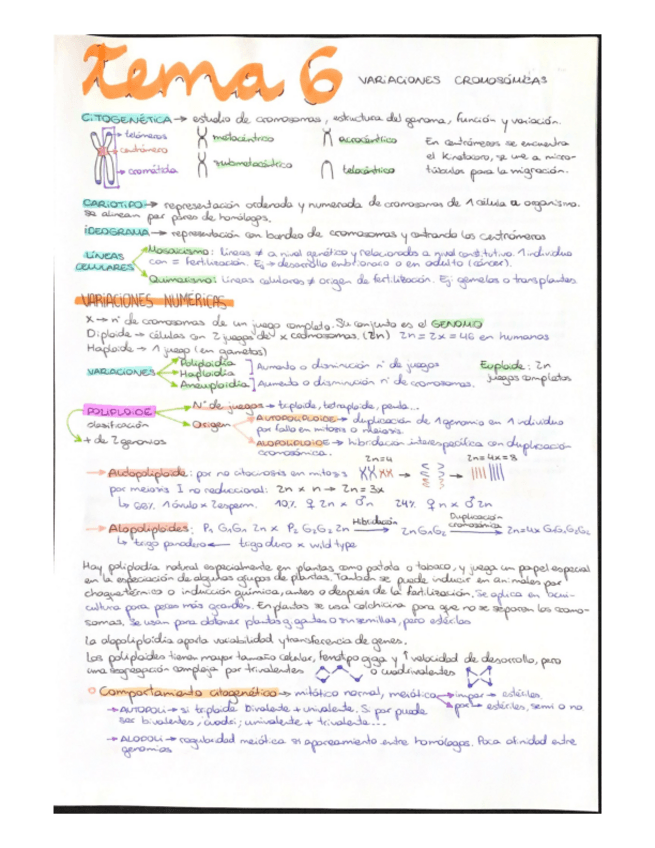 Tema 6 VARIACIONES CROMOSÓMICAS
CITOGENÉTICA → estudio de cromosomas, estructura del genoma, función y variación.
telómeros
centrómero
cromátida
metacéntrico
submetacéntrico
acrocéntrico
telocéntrico
En centrómeros se encuentra
el kinetocoro, se une a micro-
túbulos para la migración.
CARIOTIPO → representación ordenada y numerada de cromosomas de 1 célula a organismo.
Se alinean por pares de homólogos.
IDEOGRAMA → representación con bandeo de cromosomas y centrando los centrómeros
LÍNEAS CELULARES
Mosaicismo: líneas ≠ a nivel genético y relacionadas a nivel constitutivo. 1 individuo
con = fertilización. Ej → desarrollo embrionario o en adulto (cáncer).
Quimerismo: líneas celulares ≠ origen de fertilización. Ej gemelos o transplantes
VARIACIONES NUMÉRICAS
X → nº de cromosomas de un juego completo. Su conjunto es el GENOMO
Diploide → células con 2 juegos de x cromosomas. (2n) 2n = 2x = 46 en humanos
Haploide → 1 juego (en gametos)
VARIACIONES
Poliploidía
Haploidía
Aneuploidía
Aumento o disminución nº de juegos
Aumento o disminución nº de cromosomas.
Euploide: 2n
juegos completos
POLIPLOIDE
clasificación
+ de 2 genomios
Nº de juegos → triploide, tetraploide, penta...
Origen
AUTOPOLIPLOIDE → duplicación de 1 genomio en 1 individuo
por fallo en mitosis o meiosis.
ALOPOLIPLOIDE → hibridación interespecífica con duplicación
cromosómica.
2n=4 2n=4x=8
→ Autopoliploide: por no citocinesis en mitosis
por meiosis I no reduccional: 2n x n → 2n = 3x
↳ 66% 1 óvulo x 2 esperm. 10% ♀ 2n x ♂ n 24% ♀ n x ♂ 2n
→ Alopoliploides: P₁ G₁G₁ 2n x P₂ G₂G₂ 2n Hibridación → 2n G₁G₂ Duplicación cromosómica → 2n=4x G₁G₁G₂G₂
↳ trigo panadero ← trigo duro x wild type
Hay poliploidía natural especialmente en plantas como patata o tabaco, y juega un papel especial
en la especiación de algunos grupos de plantas. También se puede inducir en animales por
choque térmico o inducción química, antes o después de la fertilización. Se aplica en acui-
cultura para peces más grandes. En plantas se usa colchicina para que no se separen los cromo-
somas. Se usan para obtener plantas gigantes o sin semillas, pero estériles
La alopoliploidía aporta variabilidad y transferencia de genes.
Los poliploides tienen mayor tamaño celular, fenotipo giga y ↑ velocidad de desarrollo, pero
una segregación compleja por trivalentes o cuadrivalentes
○ Comportamiento citogenético → mitótico normal, meiótico → impar → estériles.
par → estériles, semi o no.
→ AUTOPOLI → si triploide bivalente + univalente. Si par puede
ser bivalentes, cuadri; univalente + trivalente...
→ ALOPOLI → regularidad meiótica si apareamiento entre homólogos. Poca afinidad entre
genomios